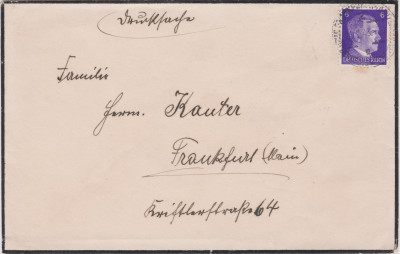 Drucksache
6 6
DEUTSCHES REICH
Familie
Herm. Kanter
Frankfurt (Main)
Kriftlerstraße 64